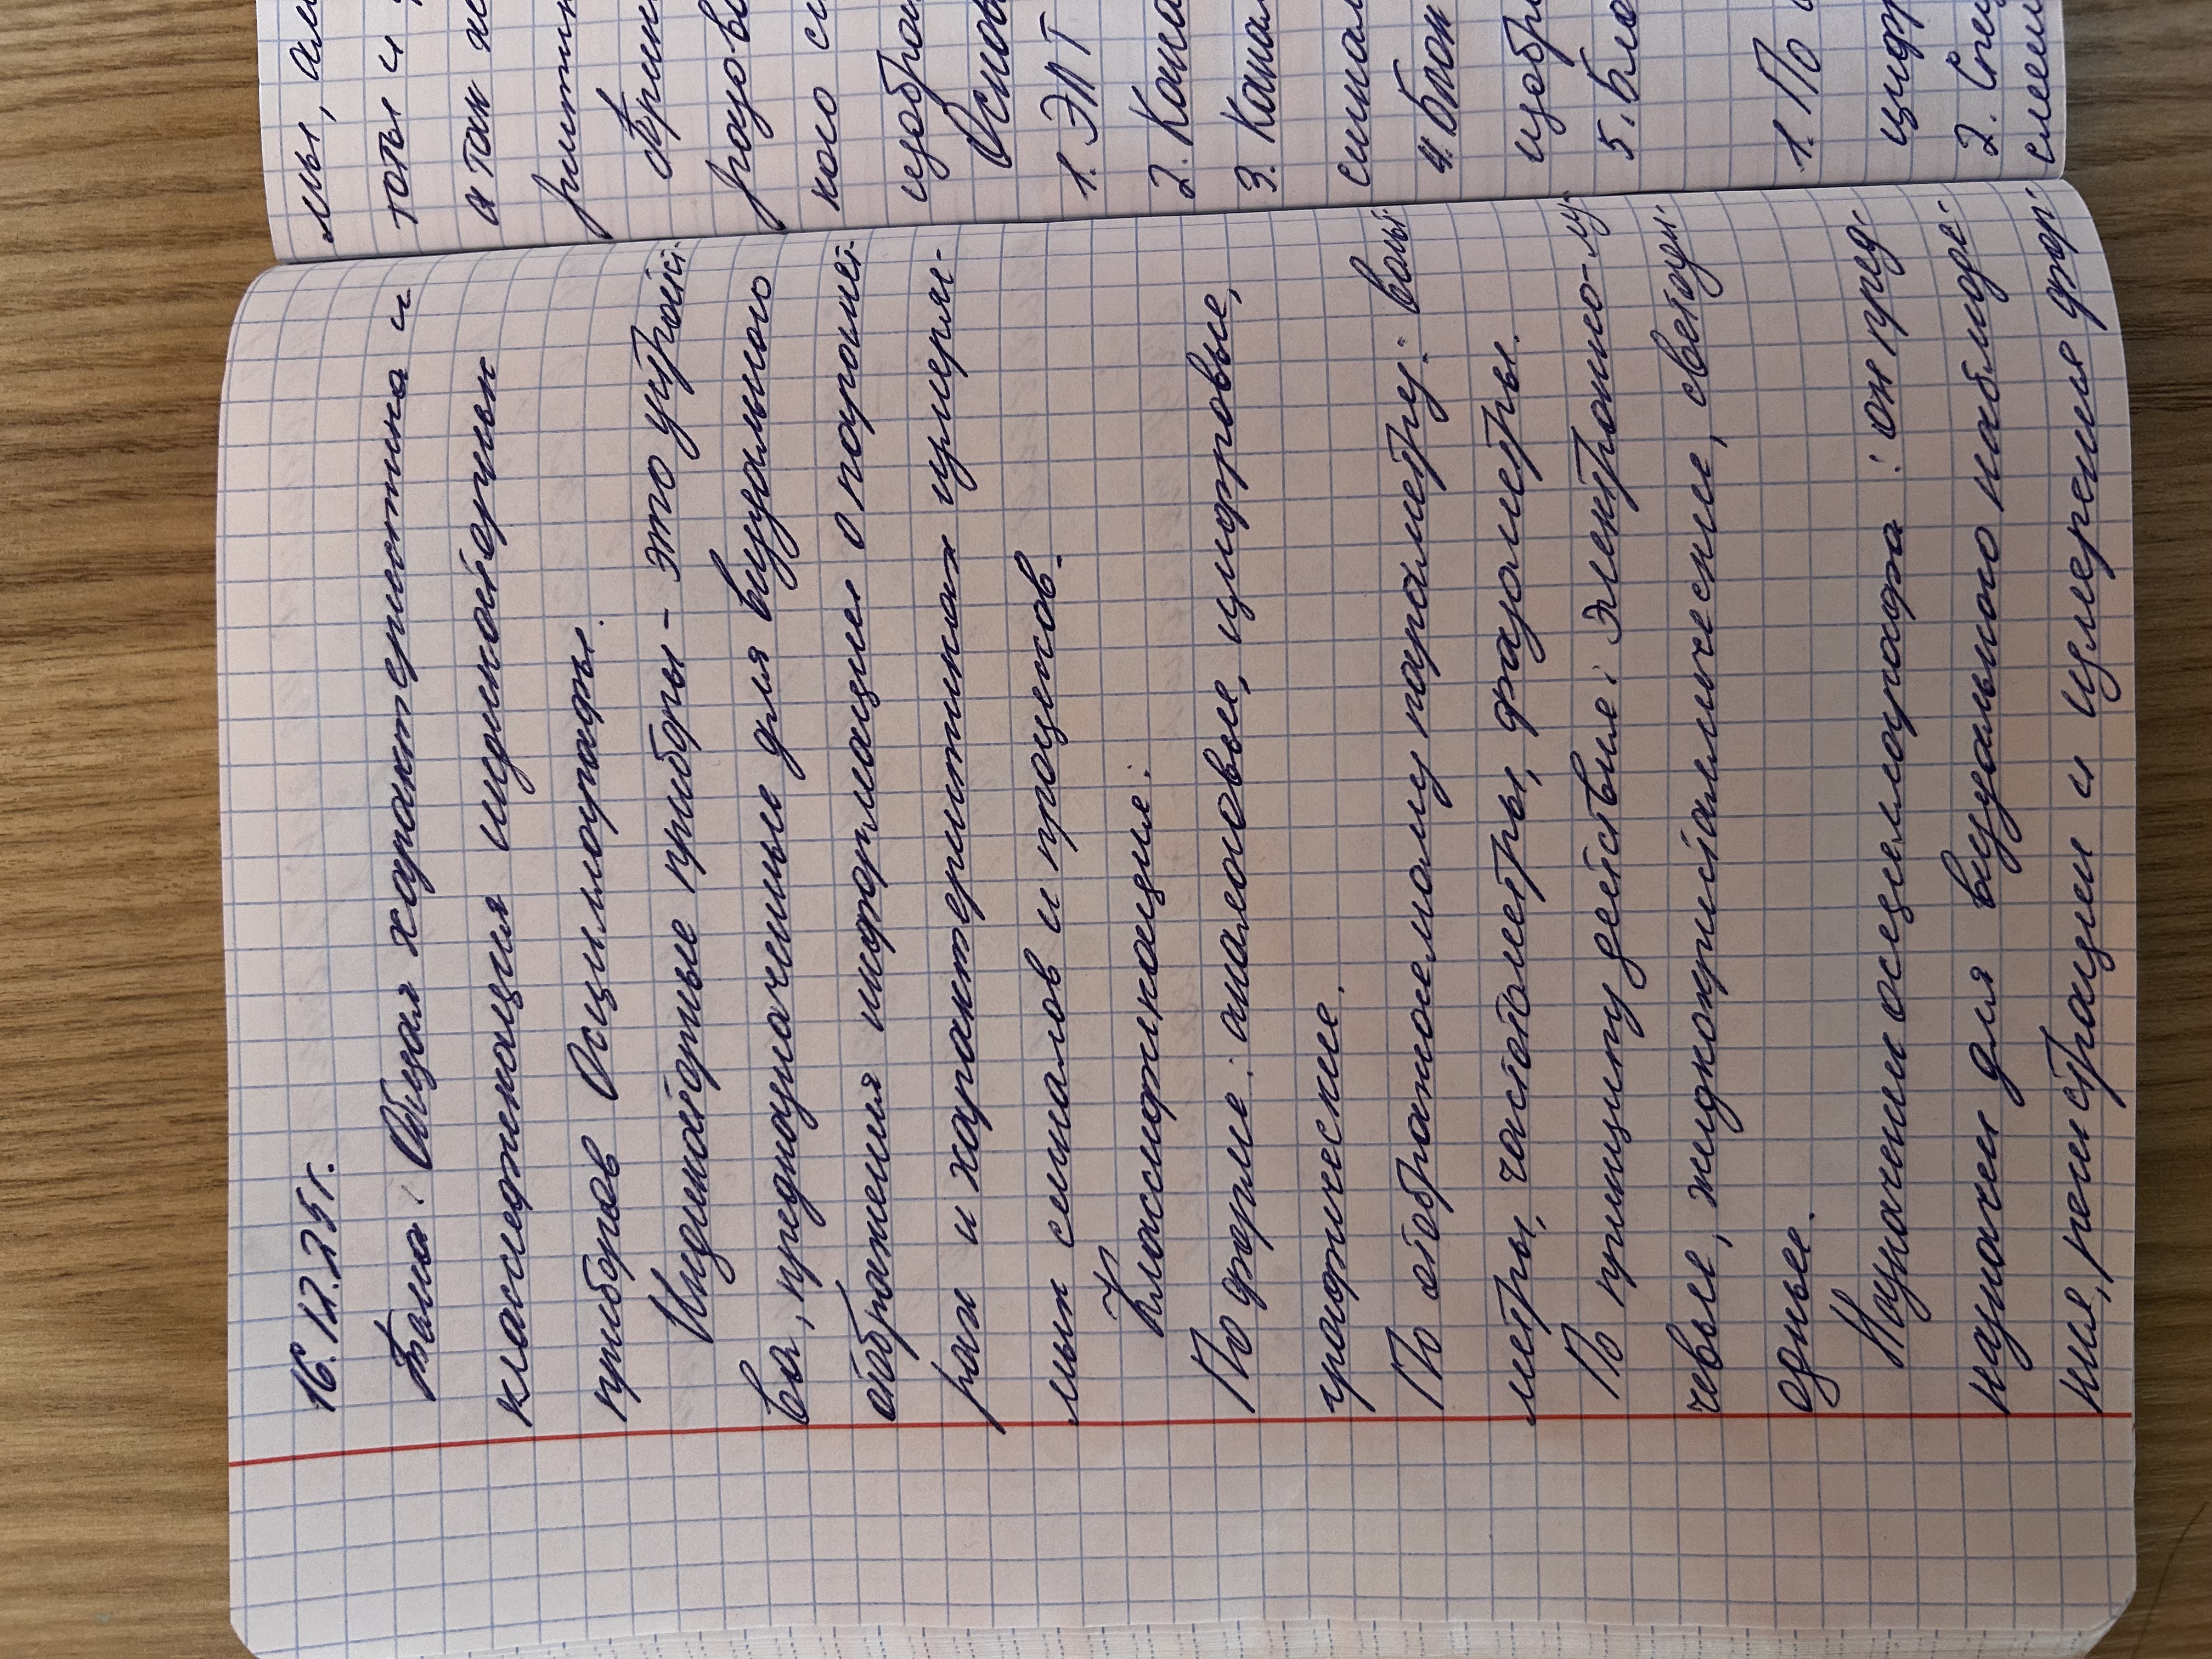 16.12.25г.
Тана: Общая характеристика и
классификация индикаторных
приборов Осциллографы.
Индикаторные приборы - это устройст-
ва, предназначенные для визуального
отображения информации о парамет-
рах и характеристиках измеряе-
мых сигналов и процессов.
Классификация:
По форме: аналоговые, цифровые,
графические.
По отображаемому параметру: вольт-
метры, частотометры, фазометры.
По принципу действия: электронно-лу-
чевые, жидкокристаллические, светоди-
одные.
Назначение осциллографа: он пред-
назначен для визуального наблюде-
ния, регистрации и измерения фор-
мы, ам
тоты и
а так же
ритми
Принц
разов
кого си
изобра
Основ
1. ЭЛТ
2. Кана
3. Канал
сигнал
4. Блок
изобр
5. Бло
1. По
цифр
2. Спец